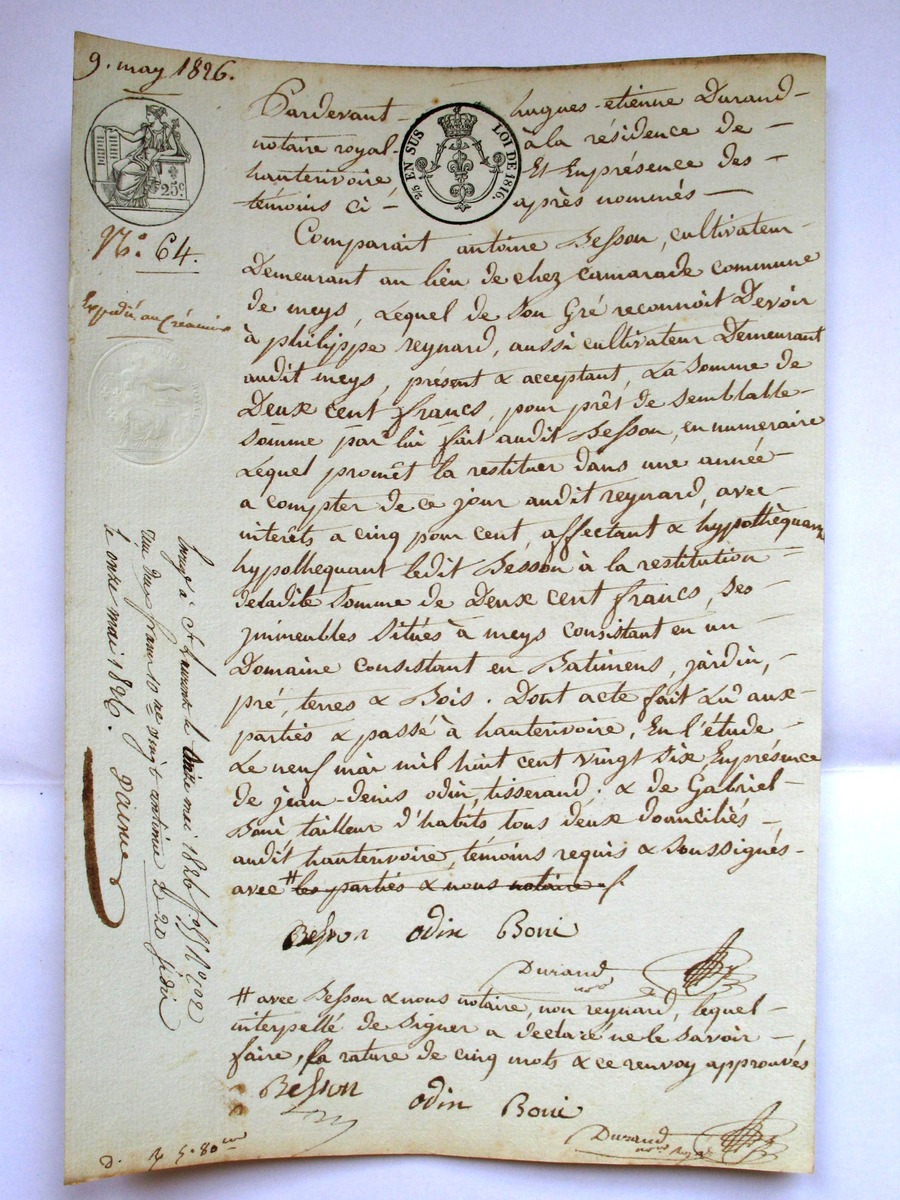 9. may 1826.
Pardevant hugues-etienne Durand
notaire royal à la résidence de
hauterivoire Et En présence des
témoins ci après nommés
25c.
2/5 EN SUS LOI DE 1816.
No. 64.
Expédié au Créancier
Comparait antoine Besson, cultivateur
Demeurant au lieu de chez camarade commune
de meys, Lequel de Son Gré reconnoit Devoir
à philippe reynard, aussi cultivateur Demeurant
audit meys, présent & acceptant, La Somme de
Deux cent francs, pour prêt de Semblable
Somme par lui fait audit Besson, en numeraire
Lequel promêt la restituer dans une année
a compter de ce jour audit reynard, avec
interêts a cinq pour cent, affectant & hypothèquant
hypothequant ledit Besson à la restitution
deladite Somme de Deux cent francs, Ses
jmmeubles Situés à meys consistant en un
Domaine consistant en Batimens, jardin,
pré, terres & Bois. Dont acte fait Lu aux
parties & passé à hauterivoire, En l'étude
Le neuf mai mil huit cent vingt Six En présence
de jean-denis odin, tisserand, & de Gabriel
Boni tailleur d'habits tous deux domiciliés
audit hauterivoire, témoins requis & Soussignés
avec # les parties & nous notaire
Besson odin Boni
Durand
# avec Besson & nous notaire, non reynard, lequel
interpellé de Signer a declaré ne le Savoir
faire, la rature de cinq mots & ce renvoy approuvés
Besson odin Boni
Durand
à St Laurent le onze mai 1826
un franc 10 ne vingt centimes
le onze mai 1826.
d. 5.80